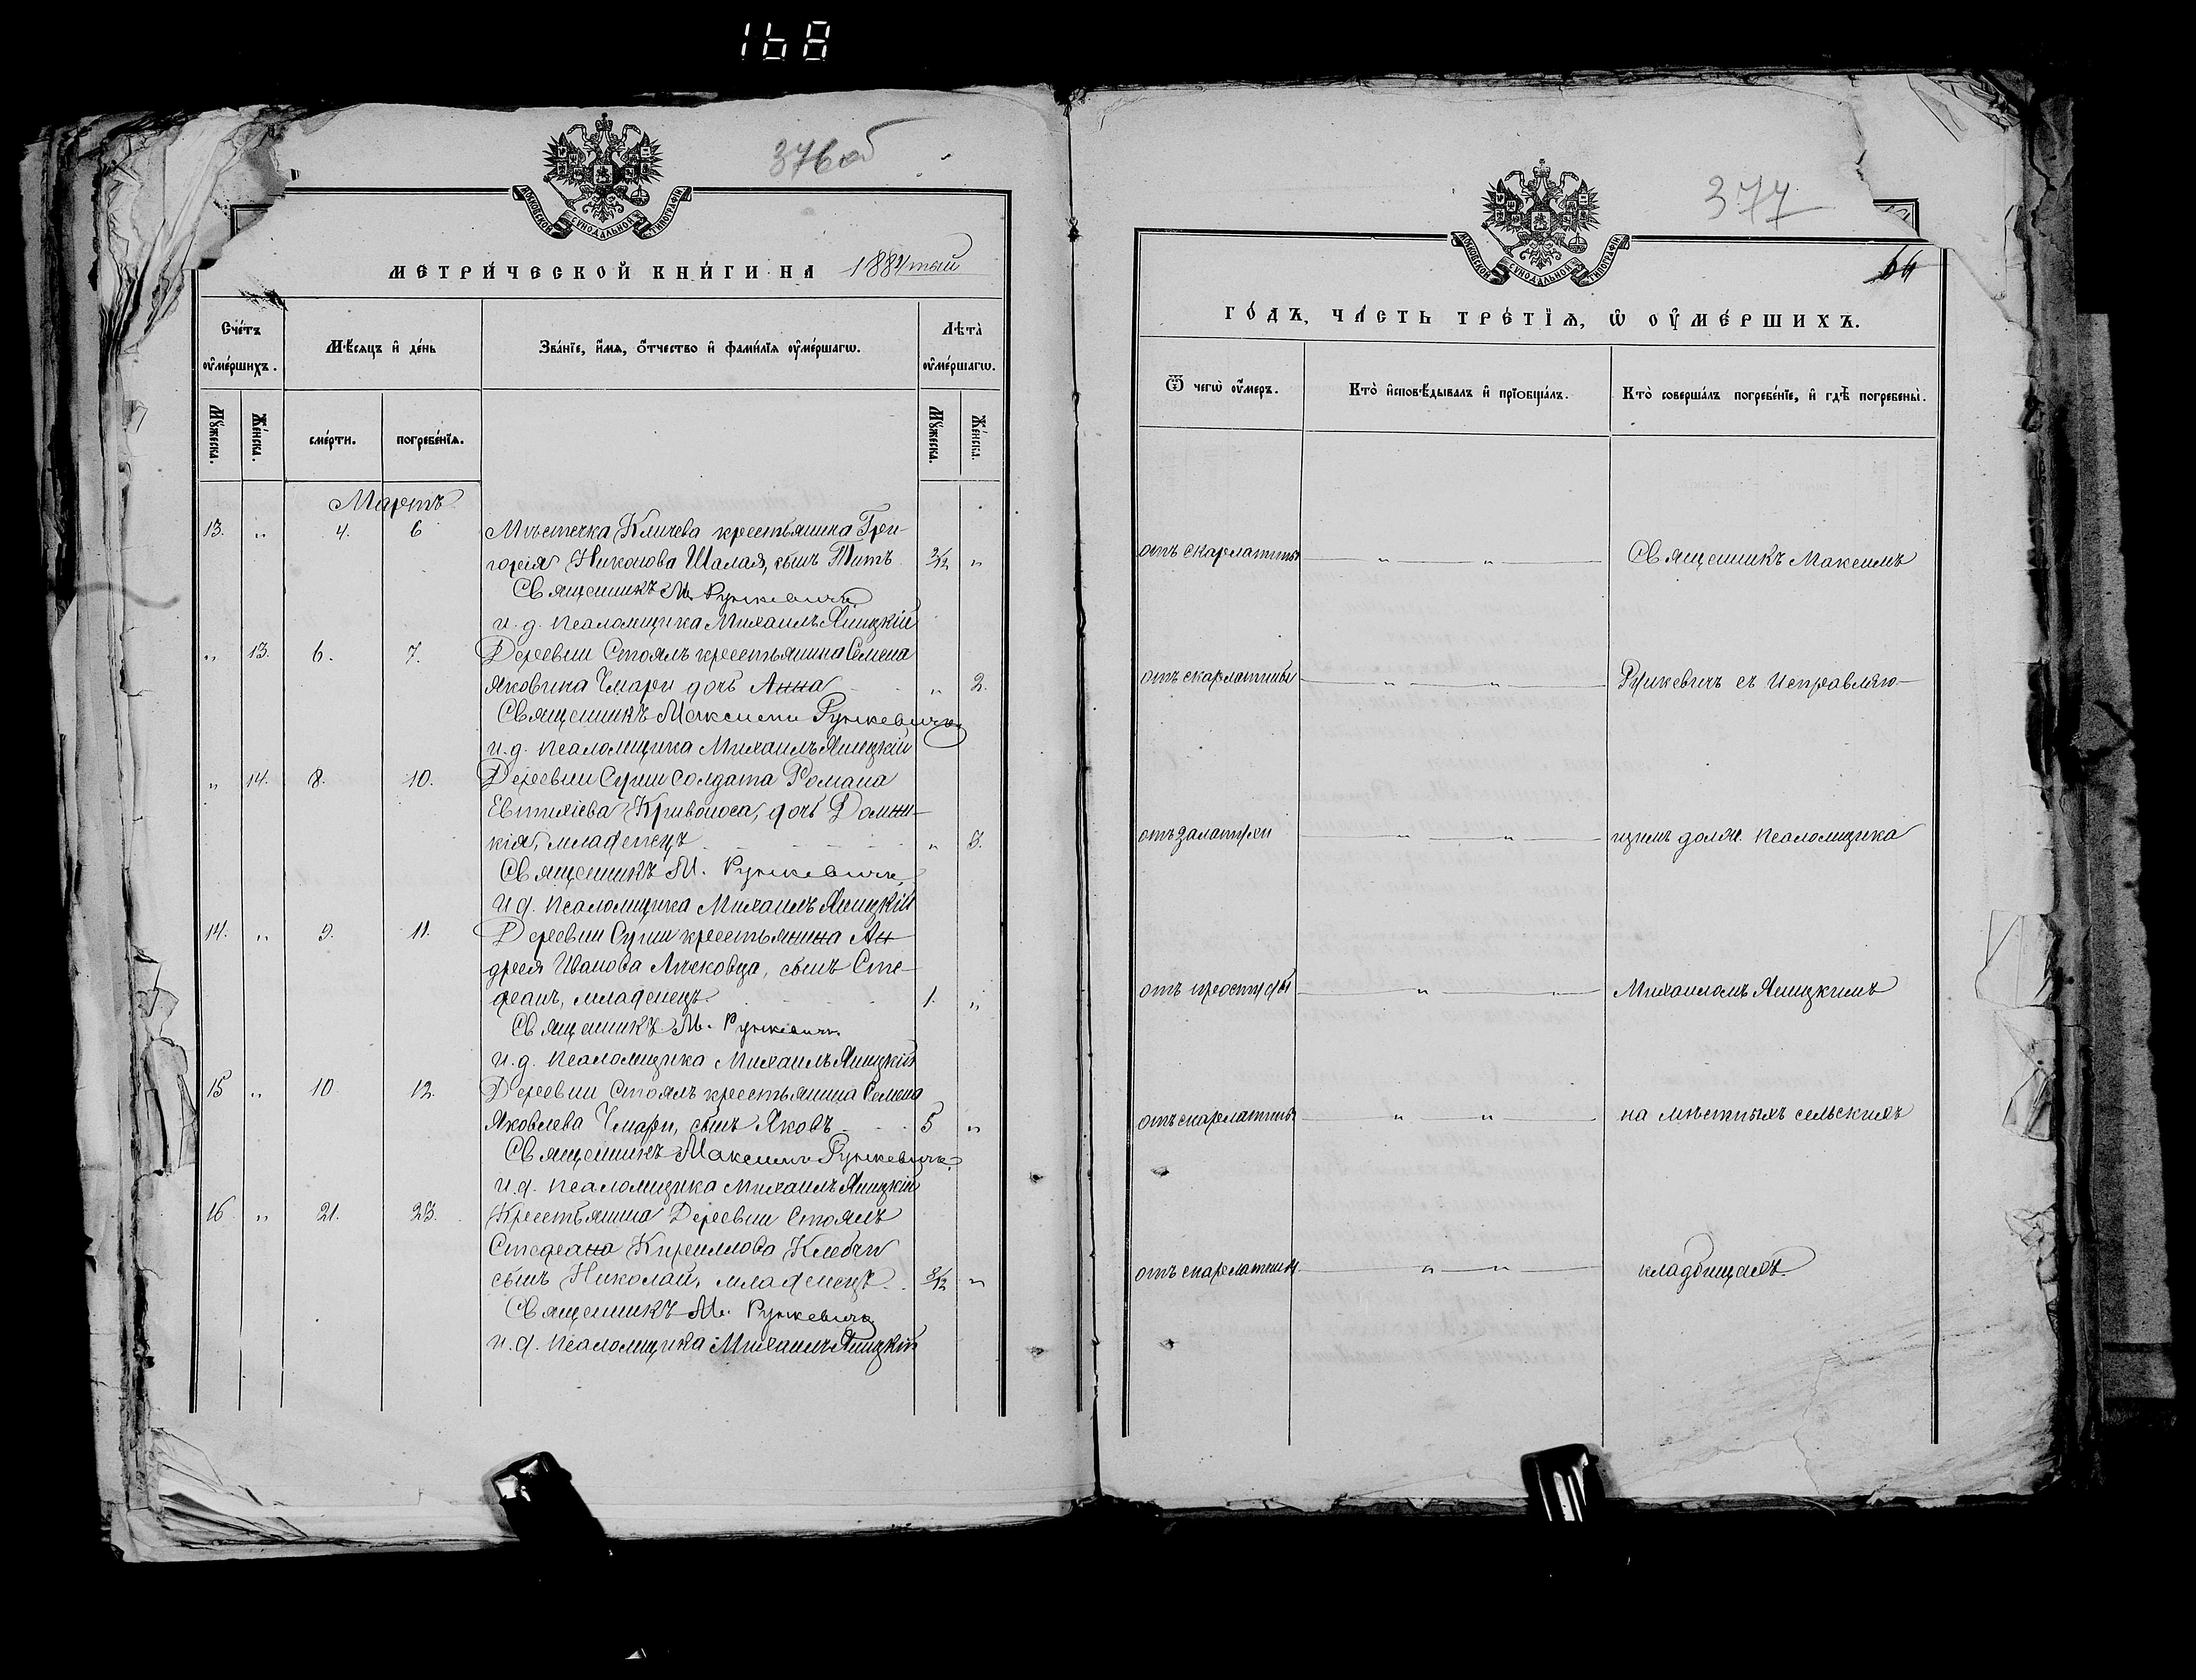 168
376об
МОСКОВСКОЙ СУНОДАЛЬНОЙ ТИПОГРАФІИ
МЕТРИЧЕСКОЙ КНИГИ НА 1884тый
Счетъ оумершихъ.
Мѣсяцъ и день
Званіе, имя, отчество и фамилія оумершагѡ.
Лѣта оумершагѡ.
Мужеска.
Женска.
смерти.
погребенія.
Мужеска.
Женска.
Мартъ
13. „ 4. 6 Мѣстечка Кличева крестьянина Гри-
горія Никонова Шалая, сынъ Титъ 2/12 „
Священникъ М. Рункевичъ
и. д. псаломщика Михаилъ Яницкій
„ 13. 6. 7. Деревни Стоялъ крестьянина Семена
Яковлева Чмари дочь Анна „ 2.
Священникъ Максимъ Рункевичъ
и. д. псаломщика Михаилъ Яницкій
„ 14. 8. 10. Деревни Суши солдата Романа
Евтихіева Кривоноса, дочь Домни-
кія, младенецъ „ 3.
Священникъ М. Рункевичъ
и д. псаломщика Михаилъ Яницкій
14. „ 9. 11. Деревни Суши крестьянина Ан-
дрея Иванова сынъ Сте-
фанъ, младенецъ. 1. „
Священникъ М. Рункевичъ
и. д. псаломщика Михаилъ Яницкій
15 „ 10. 12. Деревни Стоялъ крестьянина Семена
Яковлева Чмари, сынъ Яковъ 5 „
Священникъ Максимъ Рункевичъ
и. д. псаломщика Михаилъ Яницкій
16 „ 21. 23. Крестьянина Деревни Стоялъ
Стефана Кириллова
сынъ Николай, младенецъ 8/12 „
Священникъ М. Рункевичъ
и. д. псаломщика Михаилъ Яницкій
377
64
МОСКОВСКОЙ СУНОДАЛЬНОЙ ТИПОГРАФІИ
ГОДЪ, ЧАСТЬ ТРЕТІЯ, Ѡ ОУМЕРШИХЪ.
Ѿ чегѡ оумеръ.
Кто исповѣдывалъ и пріобщалъ.
Кто совершалъ погребеніе, и гдѣ погребены.
отъ скарлатины „ „ Священникъ Максимъ
отъ скарлатины „ „ Рункевичъ съ Исправляю-
отъ золотухи „ „ щимъ долж. псаломщика
отъ простуды „ „ Михаиломъ Яницкимъ
отъ скарлатины „ „ на мѣстныхъ сельскихъ
отъ скарлатины „ „ кладбищахъ.